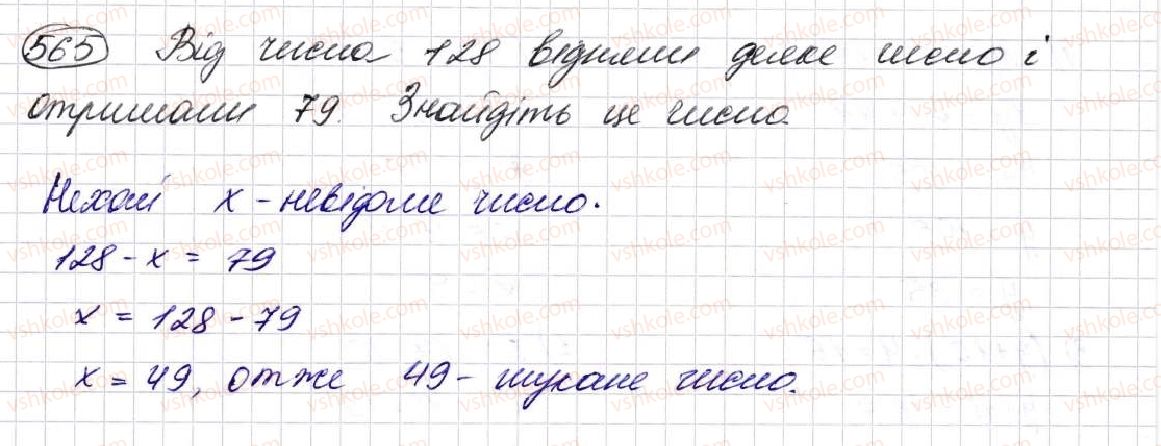 565 Від числа 128 відняли деяке число і
отримали 79. Знайдіть це число
Нехай x - невідоме число.
128 - x = 79
x = 128 - 79
x = 49, отже 49 - шукане число.